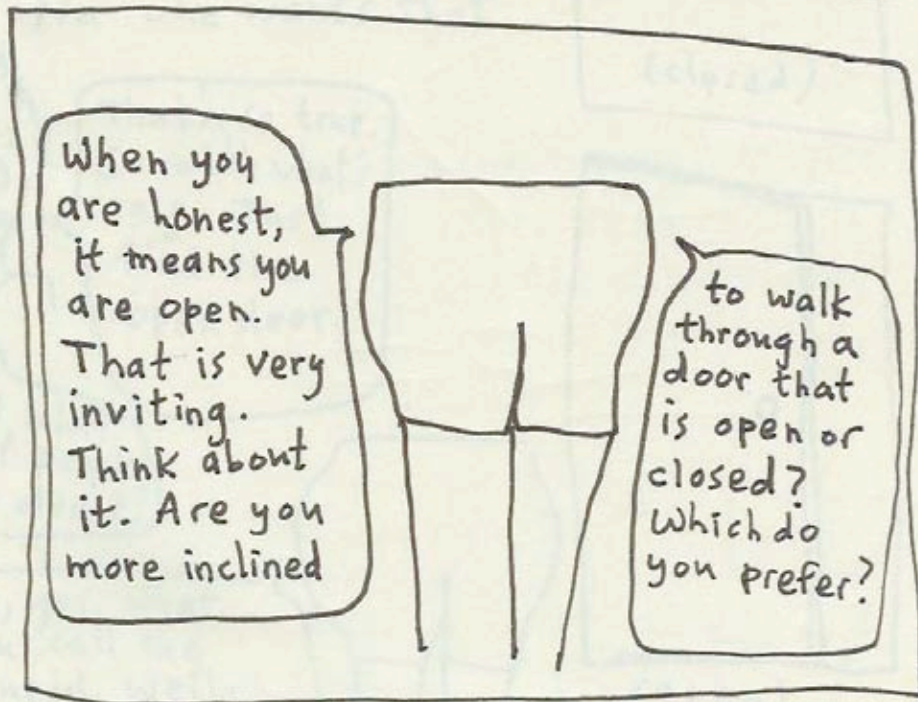 When you
are honest,
it means you
are open.
That is very
inviting.
Think about
it. Are you
more inclined
to walk
through a
door that
is open or
closed?
Which do
you prefer?
(closed)